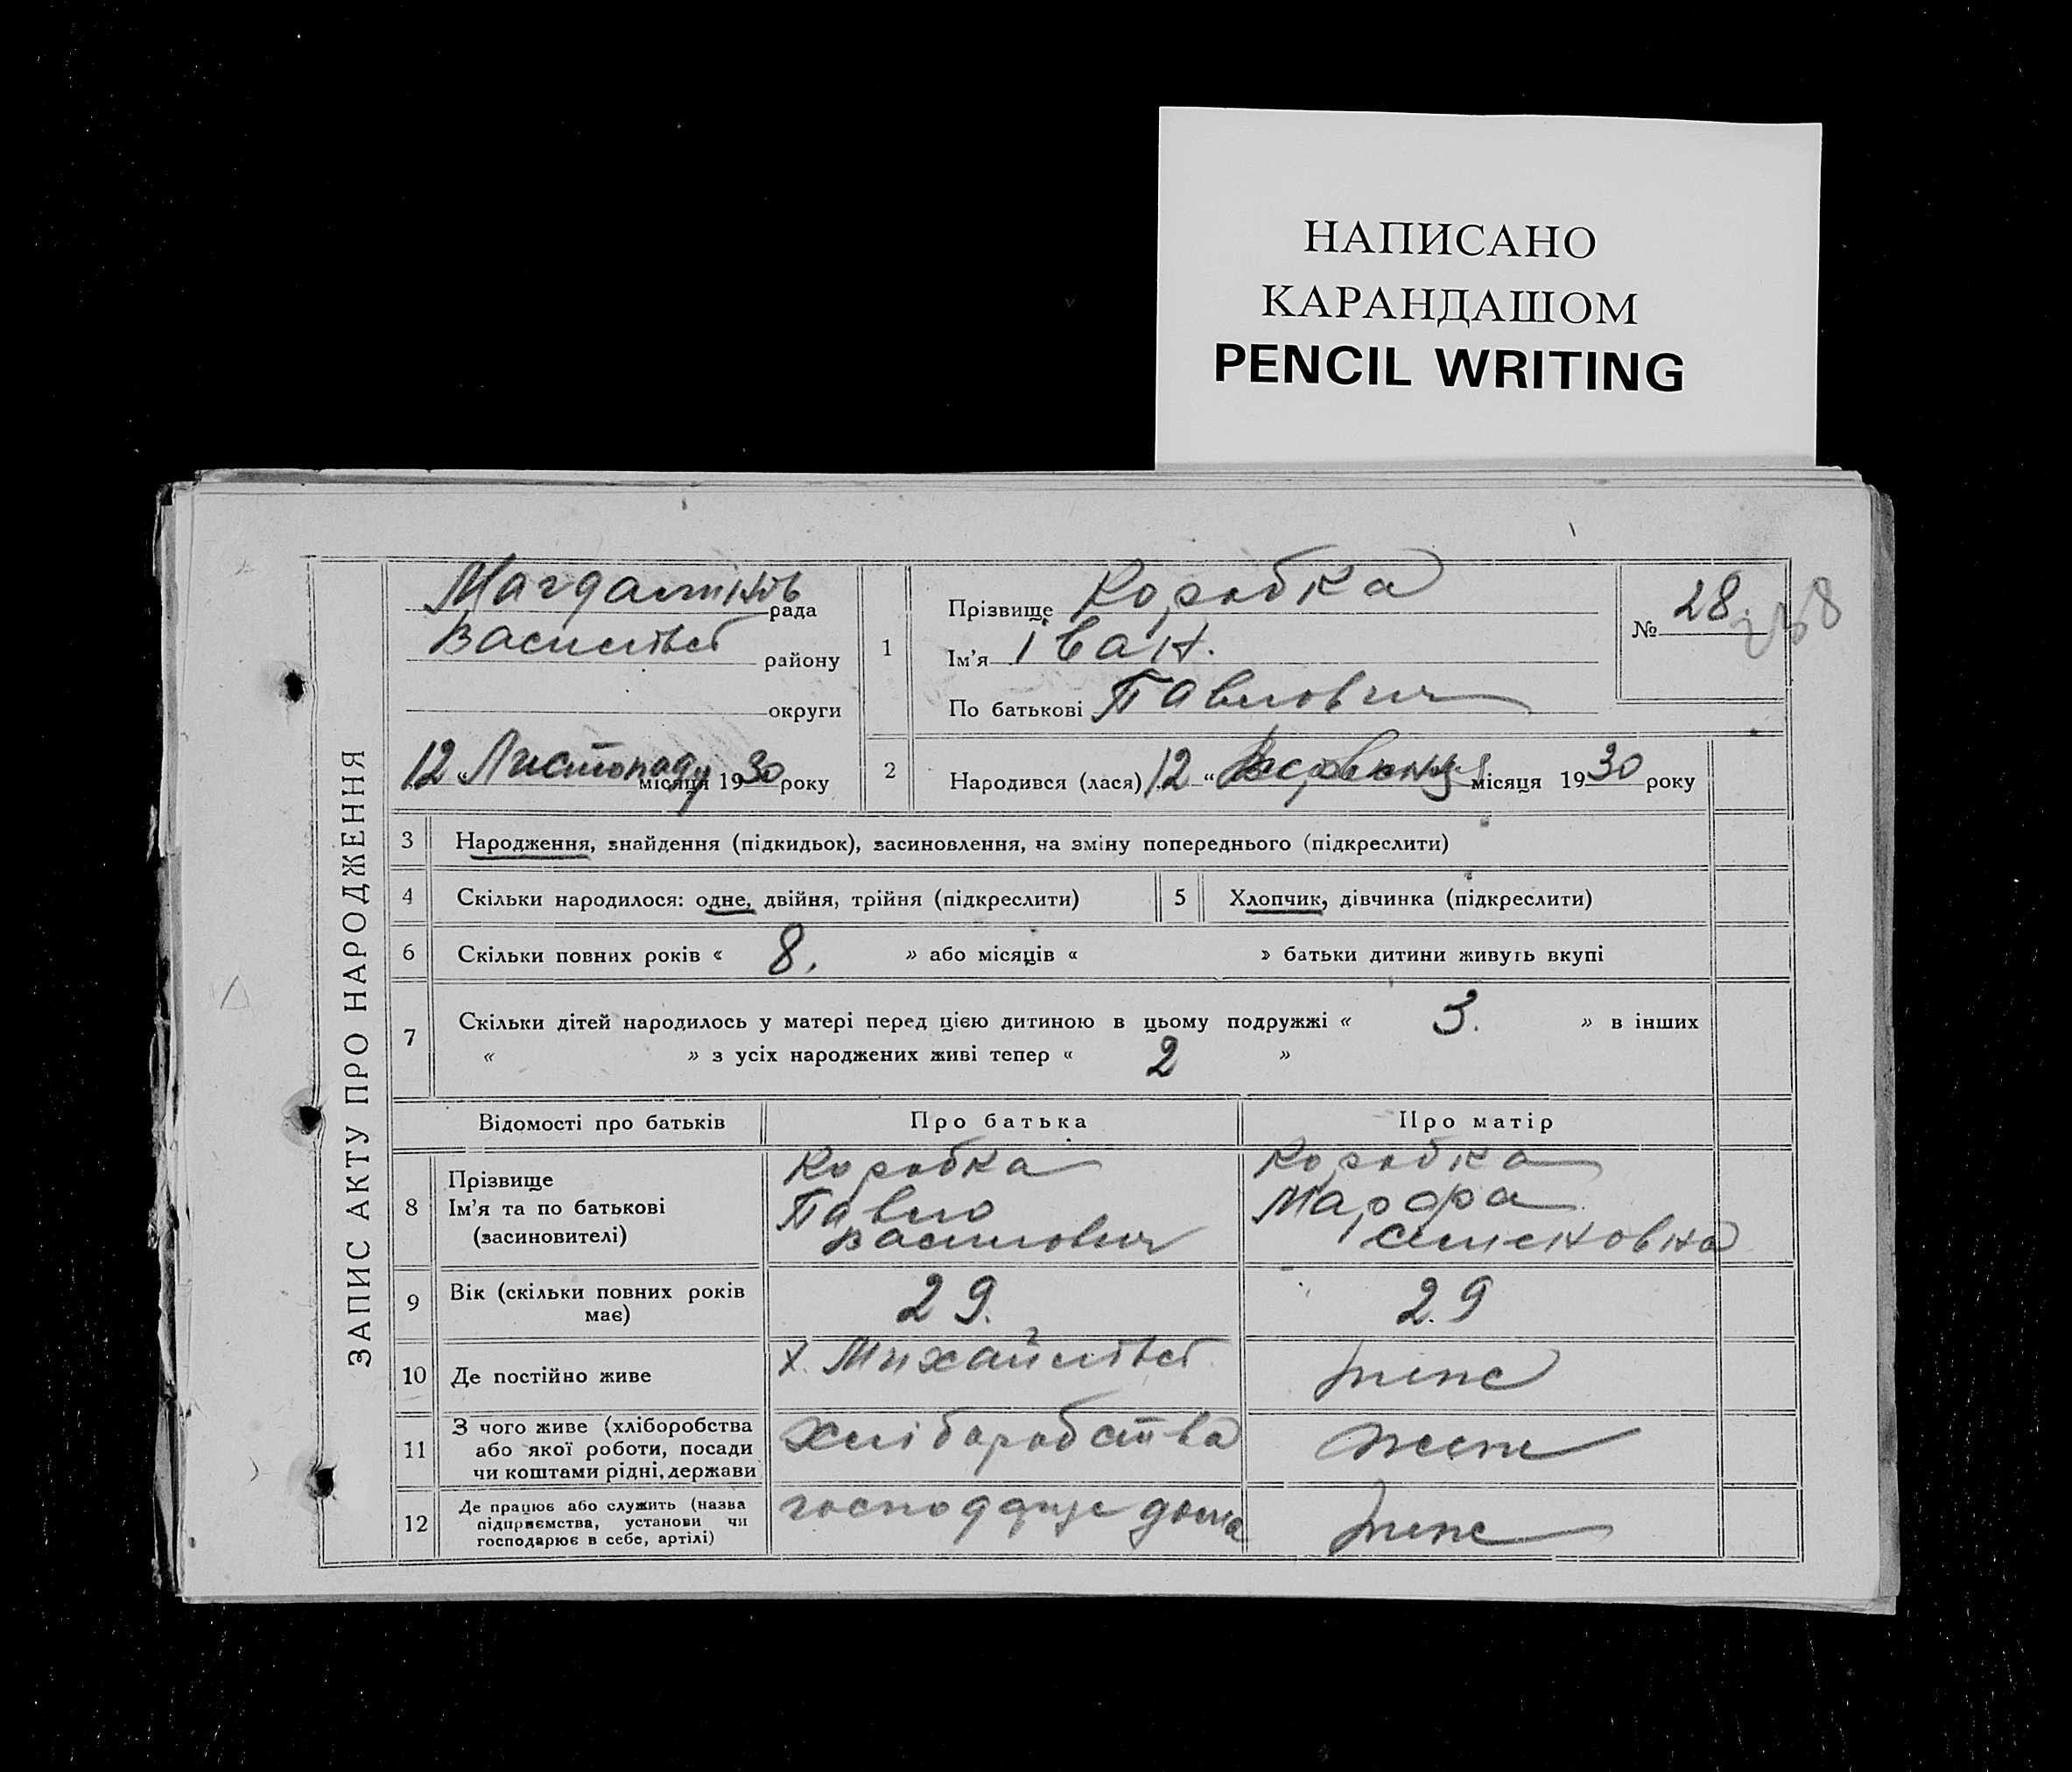 НАПИСАНО
КАРАНДАШОМ
PENCIL WRITING
ЗАПИС АКТУ ПРО НАРОДЖЕННЯ
рада
Василівсь району
округи
12 Листопаду місяця 1930 року
1
Прізвище Коробка
Ім'я Іван.
По батькові Павлович
№ 28
2 Народився (лася) 12 „ місяця 1930 року
3 Народження, знайдення (підкидьок), засиновлення, на зміну попереднього (підкреслити)
4 Скільки народилося: одне, двійня, трійня (підкреслити) 5 Хлопчик, дівчинка (підкреслити)
6 Скільки повних років « 8. » або місяців « » батьки дитини живуть вкупі
7 Скільки дітей народилось у матері перед цією дитиною в цьому подружжі « 3. » в інших
« » з усіх народжених живі тепер « 2 »
Відомості про батьків Про батька Про матір
8 Прізвище Коробка Коробка
Ім'я та по батькові Павло Марфа
(засиновителі) Василович Семеновна
9 Вік (скільки повних років 29. 29
має)
10 Де постійно живе х. Михайлівсь
11 З чого живе (хліборобства хліборобства
або якої роботи, посади
чи коштами рідні, держави
12 Де працює або служить (назва дома
підприємства, установи чи
господарює в себе, артілі)